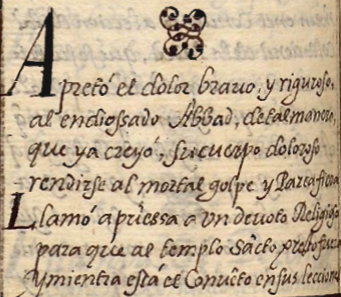 Apretó el dolor brauo, y riguroso,
al endiossado Abbad, de tal manera,
que ya creyó, su cuerpo doloroso
rendirse al mortal golpe y Parca fiera
Llamó apriessa a vn deuoto Religioso
para que al templo Sãcto presto fuera
y mientra está el Conuẽto en sus lecciones